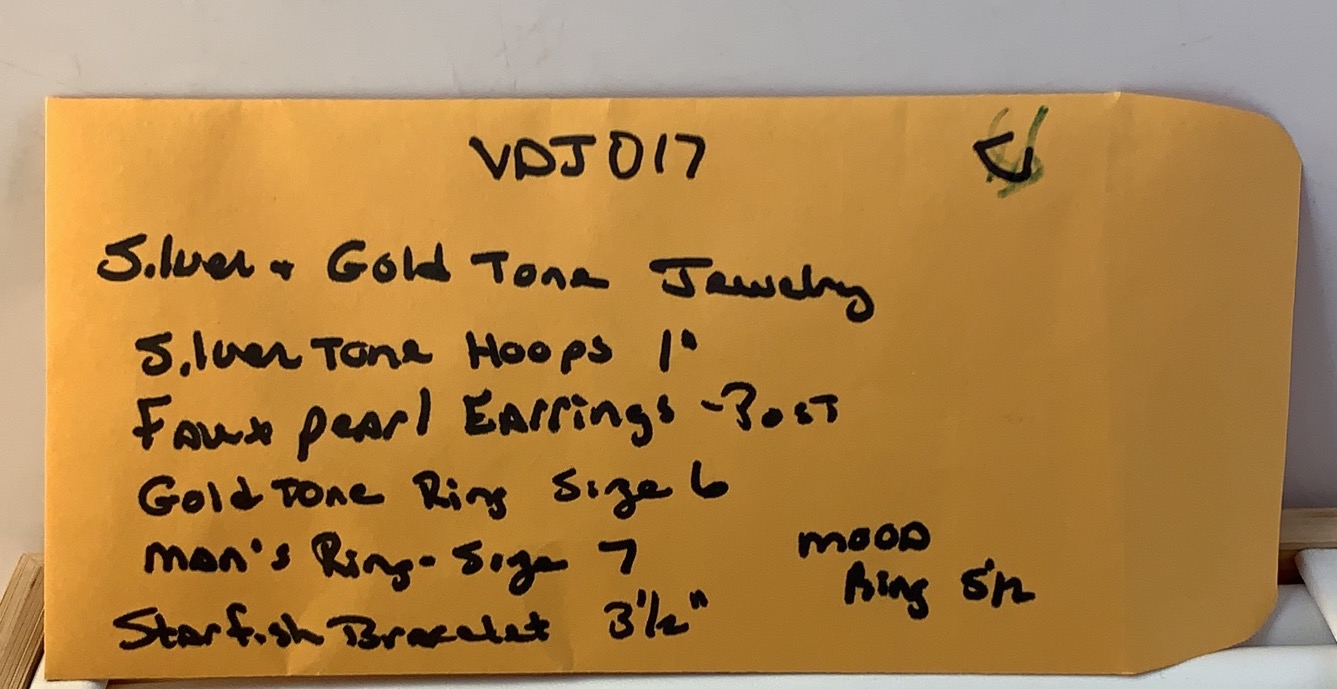 VDJ017
Silver + Gold Tone Jewelry
Silver Tone Hoops 1"
Faux pearl Earrings - Post
Gold Tone Ring Size 6
man's Ring - Size 7
mood
Ring 5 1/2
Starfish Bracelet 3 1/2"